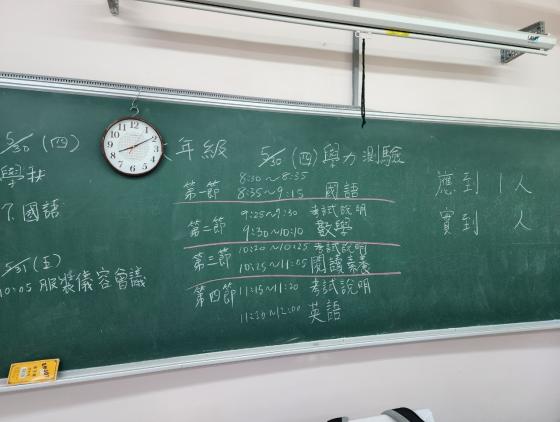 5/30 (四)
7. 國語
5/31 (五)
10:05 服裝儀容會議
年級 5/30 (四) 學力測驗
第一節 8:30~8:35
8:35~9:15 國語
第二節 9:25~9:30 考試說明
9:30~10:10 數學
第三節 10:20~10:25 考試說明
10:25~11:05 閱讀素養
第四節 11:15~11:20 考試說明
11:20~12:00 英語
應到 1 人
實到 人
12
1
2
3
4
5
6
7
8
9
10
11